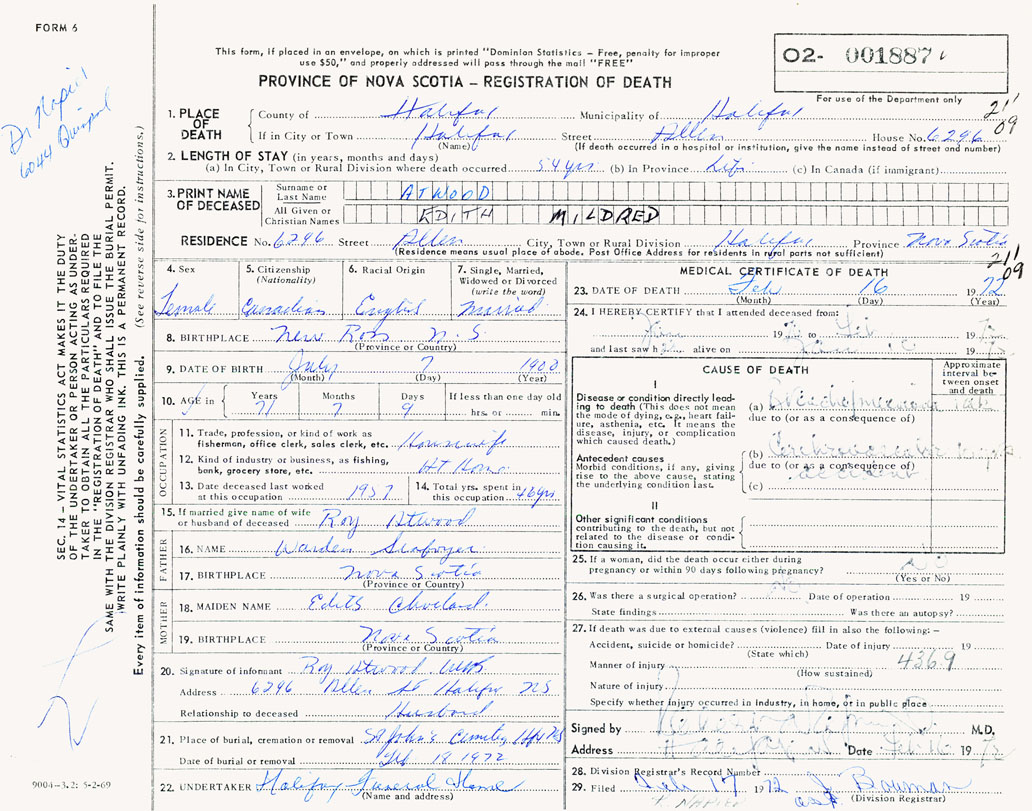 FORM 6
This form, if placed in an envelope, on which is printed "Dominion Statistics – Free, penalty for improper
use $50," and properly addressed will pass through the mail "FREE"
PROVINCE OF NOVA SCOTIA – REGISTRATION OF DEATH
O2- 001887
For use of the Department only
21'
09
Dr Napier
6044 Quinpool
SEC. 14 – VITAL STATISTICS ACT MAKES IT THE DUTY
OF THE UNDERTAKER OR PERSON ACTING AS UNDER-
TAKER TO OBTAIN ALL THE PARTICULARS REQUIRED
IN THE "REGISTRATION OF DEATH" AND TO FILE THE
SAME WITH THE DIVISION REGISTRAR WHO SHALL ISSUE THE BURIAL PERMIT.
WRITE PLAINLY WITH UNFADING INK. THIS IS A PERMANENT RECORD.
Every item of information should be carefully supplied. (See reverse side for instructions.)
1. PLACE OF DEATH
County of Halifax Municipality of Halifax
If in City or Town Halifax Street Allen House No. 6296
(Name) (If death occurred in a hospital or institution, give the name instead of street and number)
2. LENGTH OF STAY (in years, months and days)
(a) In City, Town or Rural Division where death occurred 54 yrs (b) In Province Life (c) In Canada (if immigrant)
3. PRINT NAME OF DECEASED
Surname or Last Name ATWOOD
All Given or Christian Names EDITH MILDRED
RESIDENCE No. 6296 Street Allen City, Town or Rural Division Halifax Province Nova Scotia
(Residence means usual place of abode. Post Office Address for residents in rural parts not sufficient)
21'
09
4. Sex 5. Citizenship (Nationality) 6. Racial Origin 7. Single, Married, Widowed or Divorced (write the word)
Female Canadian English Married
8. BIRTHPLACE New Ross N.S
(Province or Country)
9. DATE OF BIRTH July 7 1900
(Month) (Day) (Year)
10. AGE in Years Months Days If less than one day old
71 7 9 hrs. or min.
OCCUPATION
11. Trade, profession, or kind of work as
fisherman, office clerk, sales clerk, etc. Housewife
12. Kind of industry or business, as fishing,
bank, grocery store, etc. At Home
13. Date deceased last worked at this occupation 1957
14. Total yrs. spent in this occupation 46 yrs
15. If married give name of wife
or husband of deceased Roy Atwood
FATHER
16. NAME Warden Seaboyer
17. BIRTHPLACE Nova Scotia
(Province or Country)
MOTHER
18. MAIDEN NAME Edith Cleveland
19. BIRTHPLACE Nova Scotia
(Province or Country)
20. Signature of informant Roy Atwood
Address 6296 Allen St Halifax NS
Relationship to deceased Husband
21. Place of burial, cremation or removal St John's Cemetery Hfx NS
Date of burial or removal Feb 18 1972
22. UNDERTAKER Halifax Funeral Home
(Name and address)
9004-3.2: 5-2-69
MEDICAL CERTIFICATE OF DEATH
23. DATE OF DEATH Feb 16 1972
(Month) (Day) (Year)
24. I HEREBY CERTIFY that I attended deceased from:
19 to Feb 1972
and last saw h alive on 1972
CAUSE OF DEATH
Approximate interval between onset and death
I
Disease or condition directly lead-
ing to death (This does not mean
the mode of dying, e.g., heart fail-
ure, asthenia, etc. It means the
disease, injury, or complication
which caused death.)
(a) Bronchopneumonia
due to (or as a consequence of)
Antecedent causes
Morbid conditions, if any, giving
rise to the above cause, stating
the underlying condition last.
(b) Cerebrovascular
due to (or as a consequence of)
accident
(c)
II
Other significant conditions
contributing to the death, but not
related to the disease or condi-
tion causing it.
25. If a woman, did the death occur either during
pregnancy or within 90 days following pregnancy? No
(Yes or No)
26. Was there a surgical operation? Date of operation 19
State findings Was there an autopsy?
27. If death was due to external causes (violence) fill in also the following: –
Accident, suicide or homicide? Date of injury 19
(State which)
Manner of injury 4369
(How sustained)
Nature of injury
Specify whether injury occurred in industry, in home, or in public place
Signed by M.D.
Address Date Feb 16 1972
28. Division Registrar's Record Number
29. Filed Feb 17 1972 J Bowman
(Division Registrar)
P. NAPIER